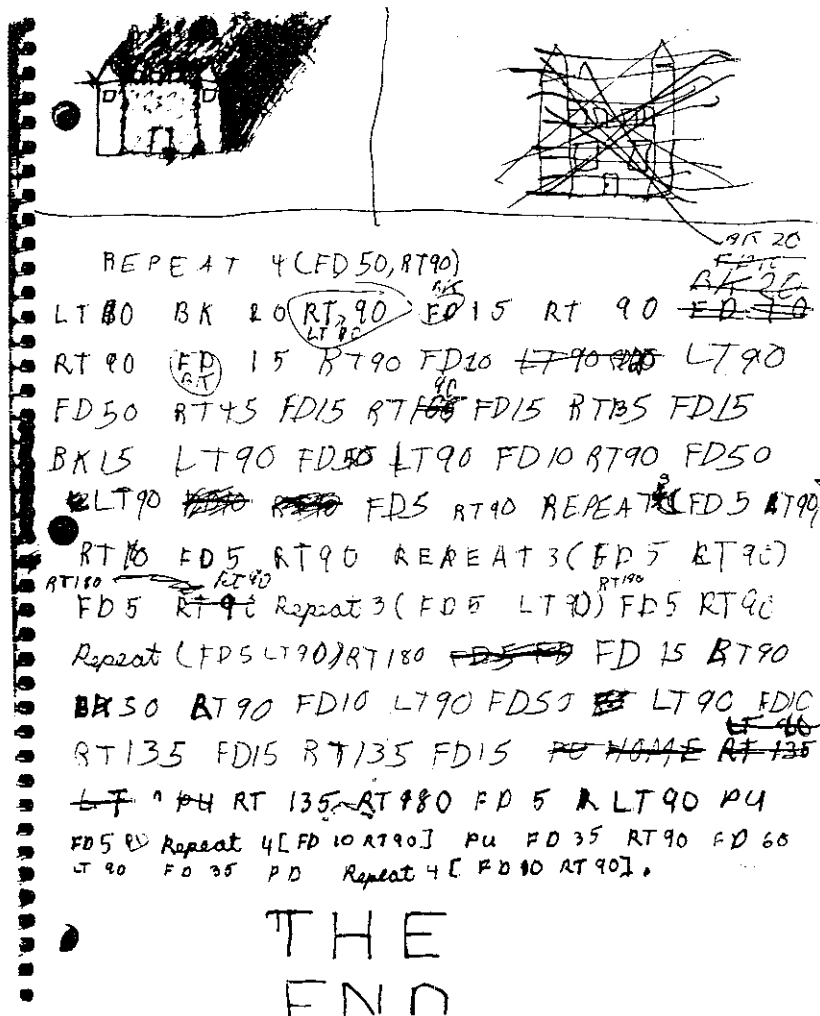 BK 20
REPEAT 4(FD50,RT90)
BK 20
LT BK RT 90 FD 15 RT 90
LT 90
RT 90 FD 15 RT90 FD10 LT90
90
FD50 RT45 FD15 RT FD15 RT135 FD15
BK15 LT90 FD50 LT90 FD10 RT90 FD50
LT90 FD5 RT90 REPEAT 3(FD5 RT90)
RT FD5 RT90 REPEAT 3(FD5 LT90)
RT180 RT90 RT180
FD5 Repeat 3(FD5 LT90) FD5 RT90
Repeat (FD5 LT90) RT180 FD 15 RT90
BK50 RT90 FD10 LT90 FD50 LT90 FD10
RT135 FD15 RT135 FD15 PU HOME RT 135
LT PU RT 135 RT180 FD 5 LT90 PU
FD5 PD Repeat 4[FD 10 RT90] PU FD 35 RT90 FD 60
LT 90 FD 35 PD Repeat 4[FD10 RT90].
THE
END